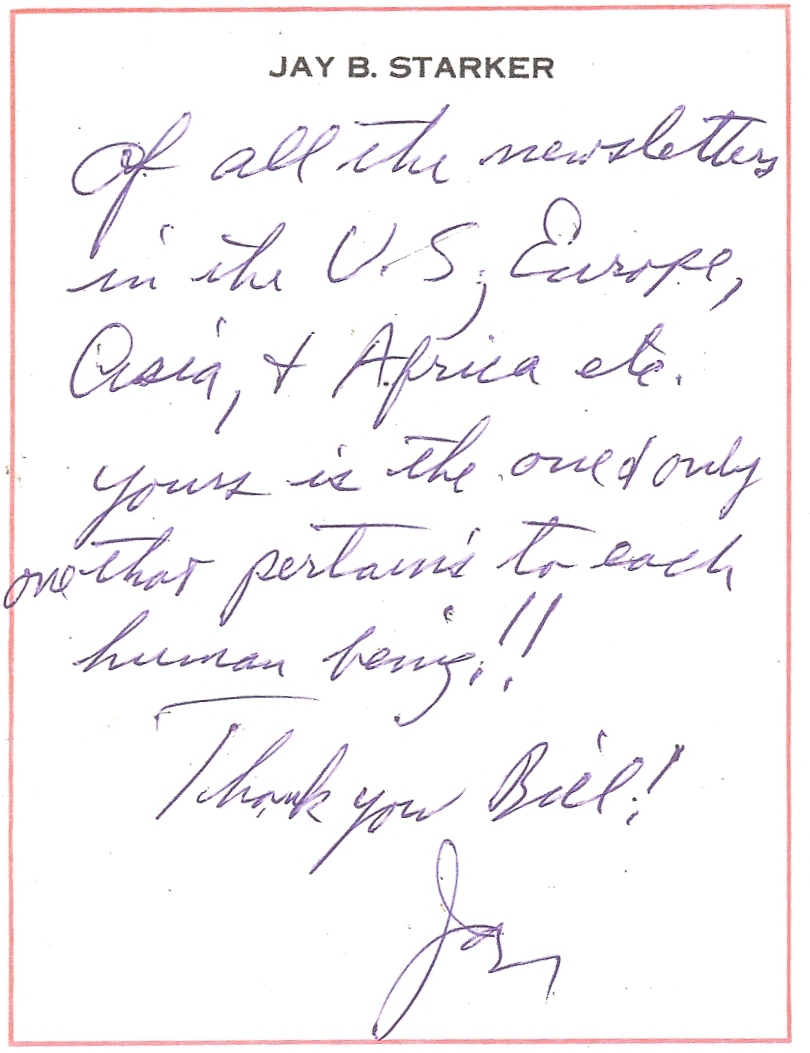 JAY B. STARKER
Of all the newsletters
in the U.S, Europe,
Asia, & Africa etc.
yours is the one & only
one that pertains to each
human being!!
Thank you Bill!
Jay